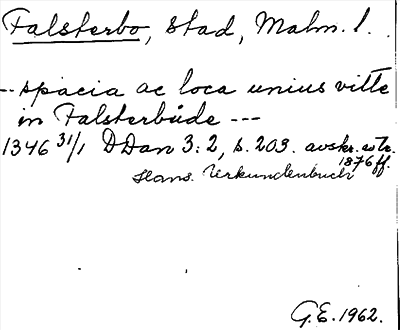 Falsterbo, stad, Malm. l.
-- spacia ac loca unius vitte
in Falsterbůde ---
1346 31/1 DDan 3:2, s. 203. avskr. estr.
1876 ff.
Hans. Urkundenbuch
G.E. 1962.